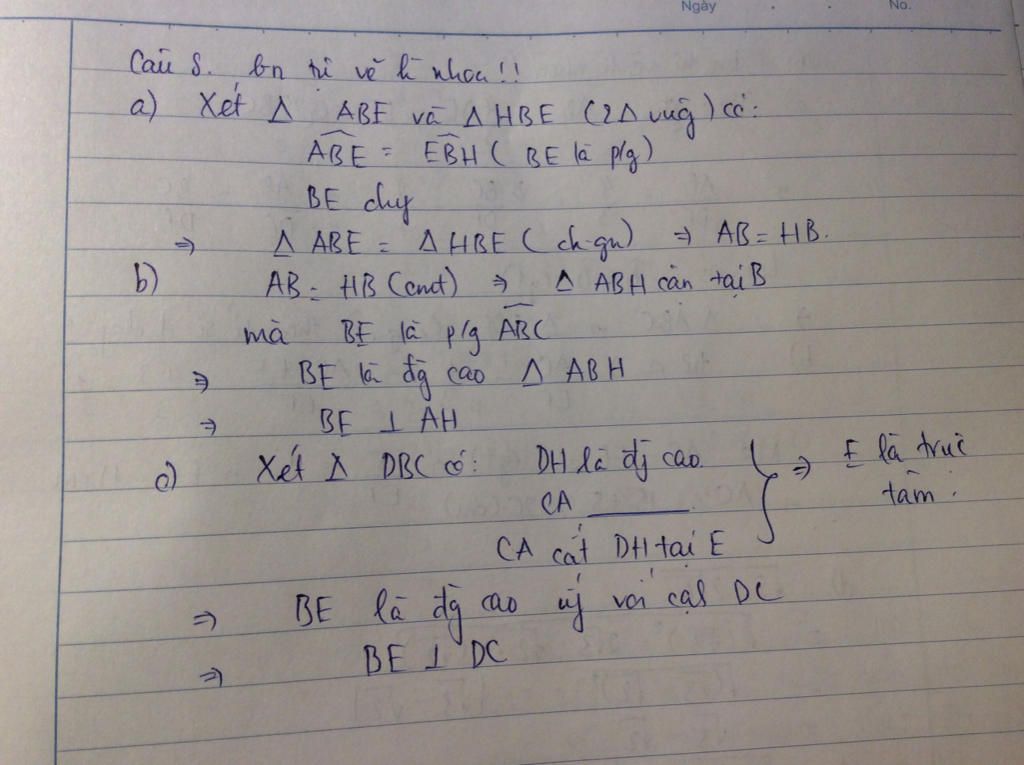 Ngày
No.
Câu 8. bn tự vẽ h nhoa!!
a) Xét Δ ABE và Δ HBE (2Δ vug) có:
ABE = EBH ( BE là p/g)
BE chg
⇒ Δ ABE = Δ HBE ( ch-gn) ⇒ AB = HB.
b) AB = HB (cmt) ⇒ Δ ABH cân tại B
mà BE là p/g ABC
⇒ BE là đg cao Δ ABH
⇒ BE ⊥ AH
c) Xét Δ DBC có: DH là đg cao. ⇒ E là trực
CA
tâm.
CA cắt DH tại E
⇒ BE là đg cao ứg với cạh DC
⇒ BE ⊥ DC